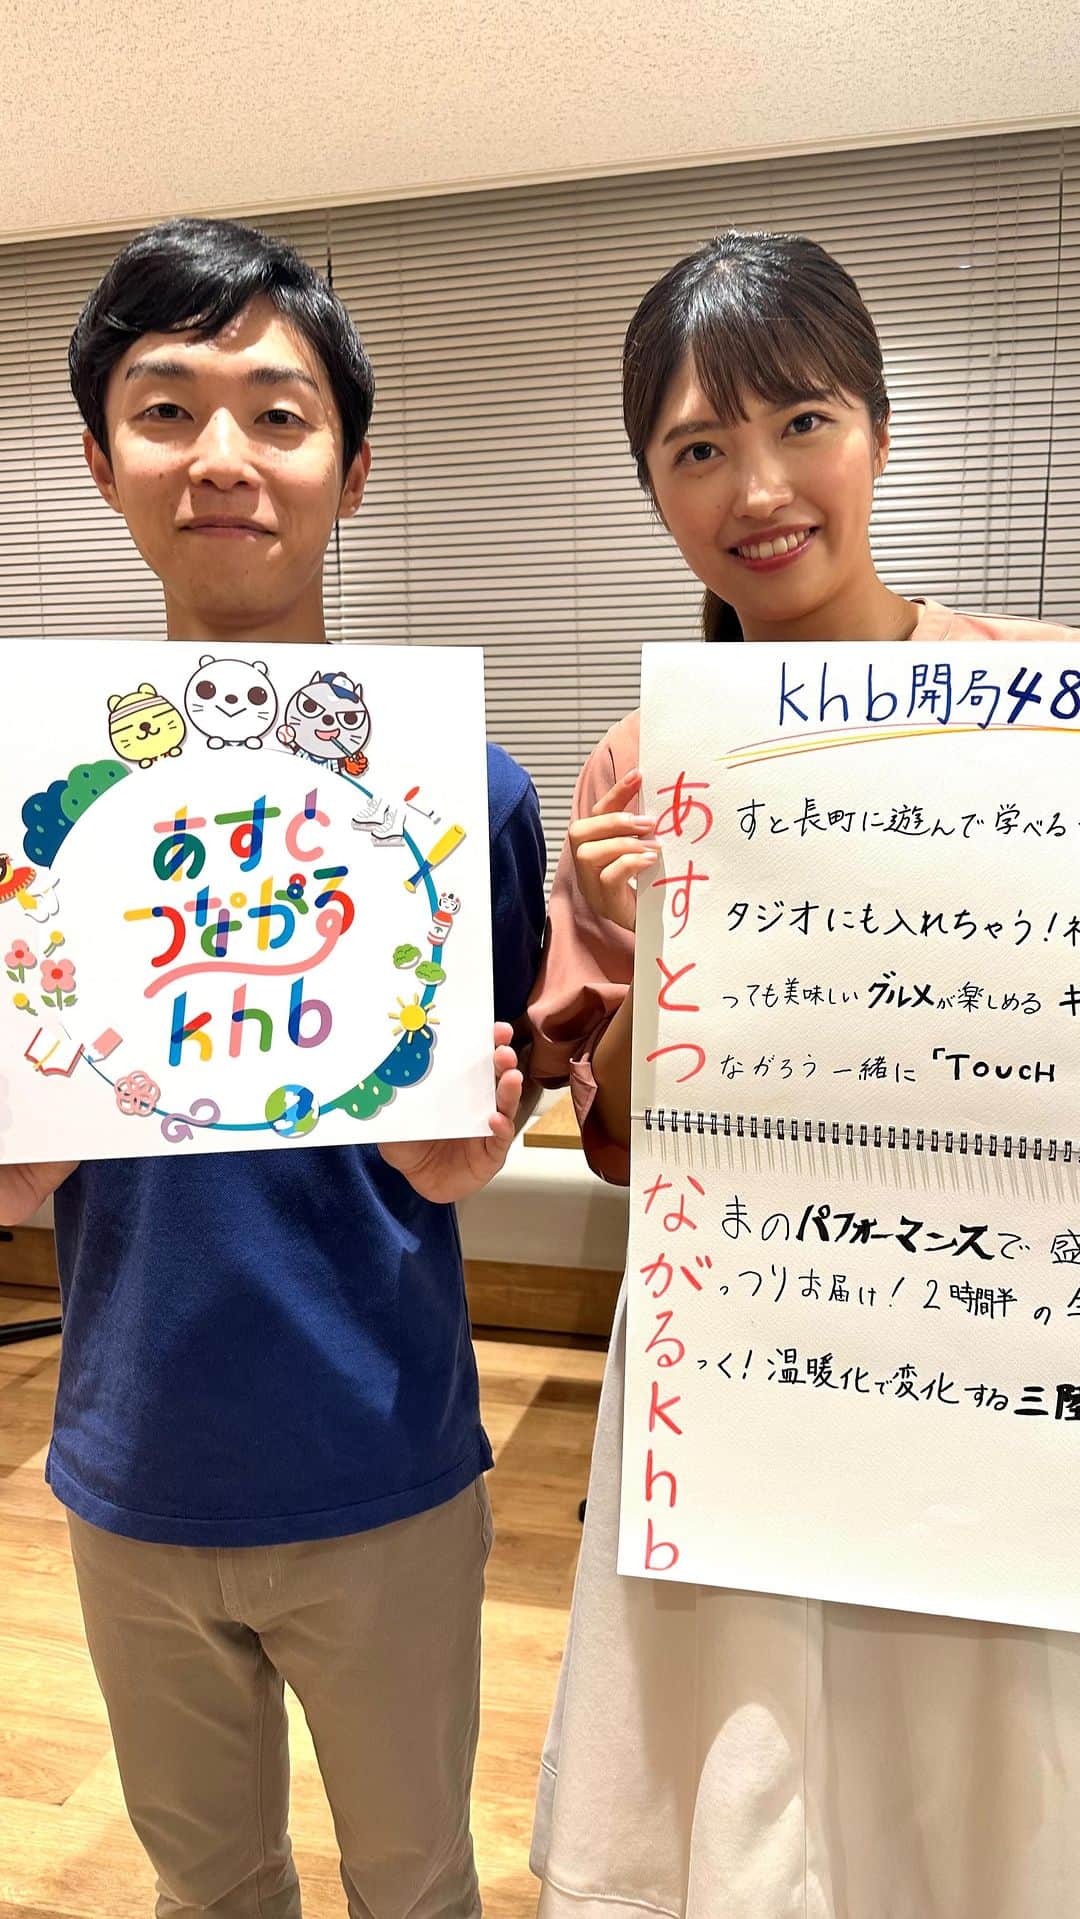 あすと
つながる
khb
khb開局48
あすと長町に遊んで学べる
すタジオにも入れちゃう!
とっても美味しいグルメが楽しめる キ
つながろう一緒に「TOUCH
なまのパフォーマンスで 盛
がっつりお届け!2時間半の
るっく!温暖化で変化する三陸
khb